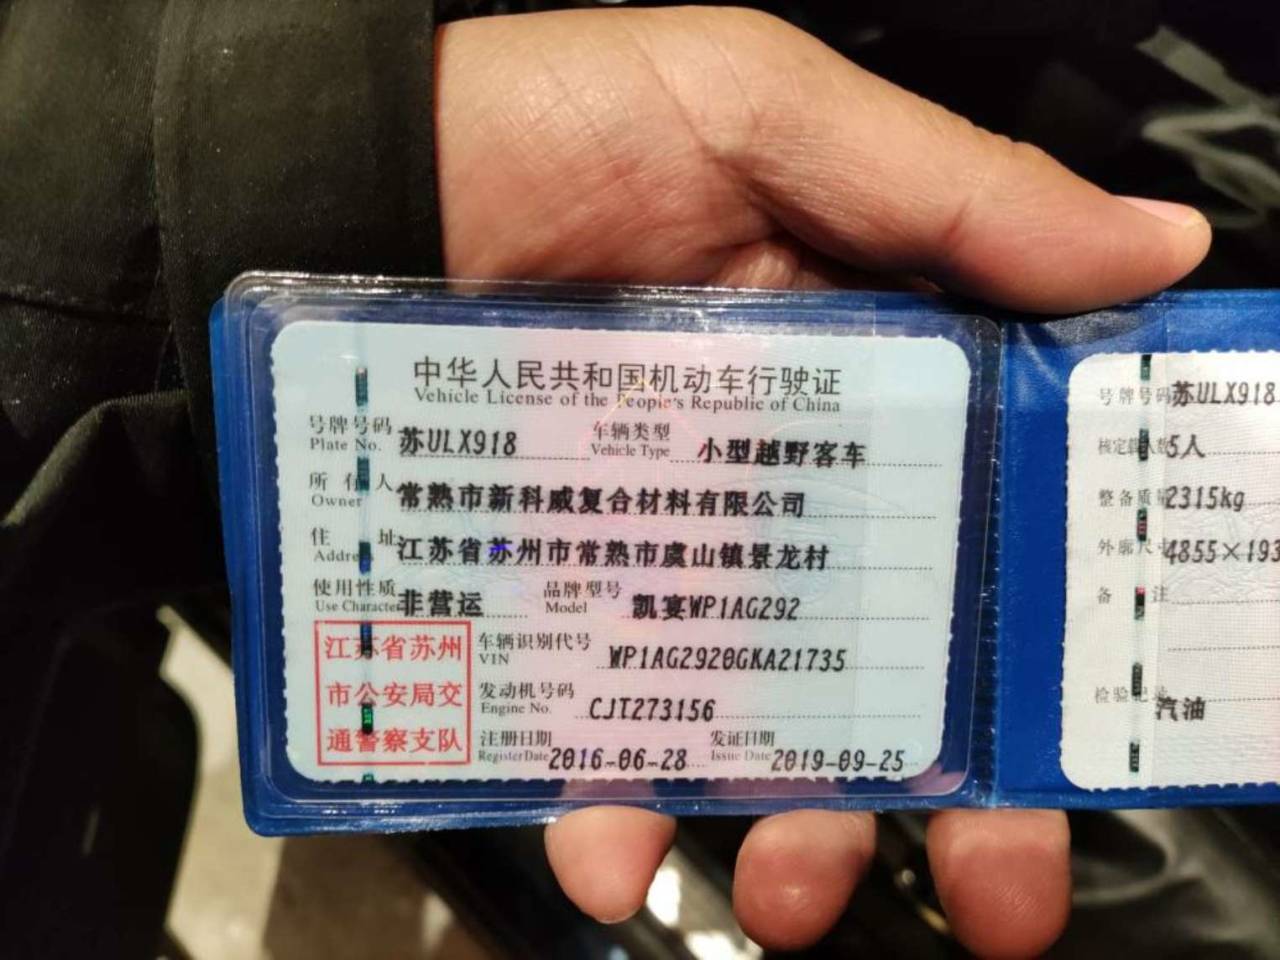 中华人民共和国机动车行驶证
Vehicle License of the People's Republic of China
号牌号码 苏ULX918 车辆类型 小型越野客车
Plate No. Vehicle Type
所有人 常熟市新科威复合材料有限公司
Owner
住址 江苏省苏州市常熟市虞山镇景龙村
Address
使用性质 非营运 品牌型号 凯宴WP1AG292
Use Character Model
江苏省苏州
市公安局交
通警察支队
车辆识别代号 WP1AG2920GKA21735
VIN
发动机号码 CJT273156
Engine No.
注册日期 2016-06-28 发证日期 2019-09-25
Register Date Issue Date
号牌号码 苏ULX918
核定载人数 5人
整备质量 2315kg
外廓尺寸 4855×193
备注
检验记录
汽油